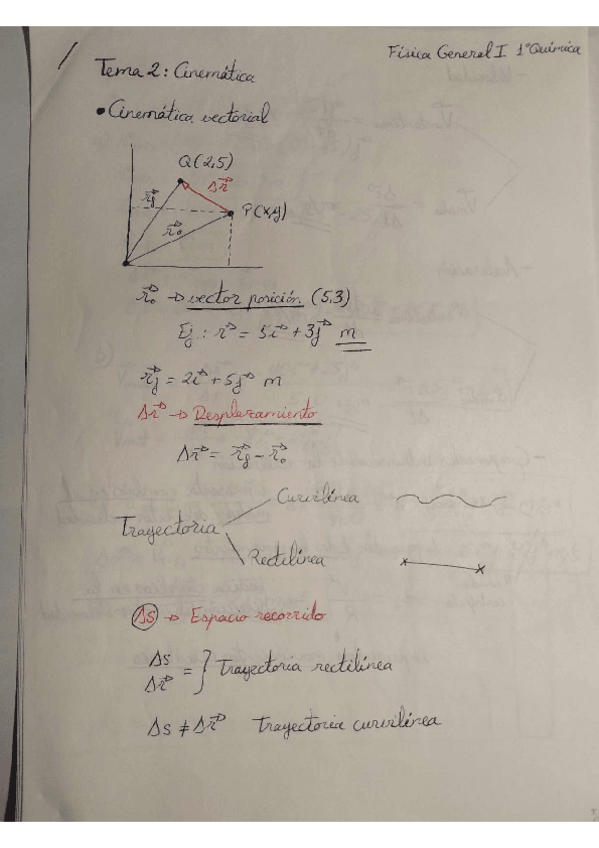 Física General I 1º Química
Tema 2: Cinemática
• Cinemática vectorial
Q(2,5)
Δr⃗
r⃗f
P(x,y)
r⃗o
r⃗o → vector posición (5,3)
Ej: r⃗ = 5i⃗ + 3j⃗ m
r⃗f = 2i⃗ + 5j⃗ m
Δr⃗ → Desplazamiento
Δr⃗ = r⃗f - r⃗o
Curvilínea
Trayectoria
Rectilínea
Δs → Espacio recorrido
Δs
Δr⃗ = } Trayectoria rectilínea
Δs ≠ Δr⃗ Trayectoria curvilínea